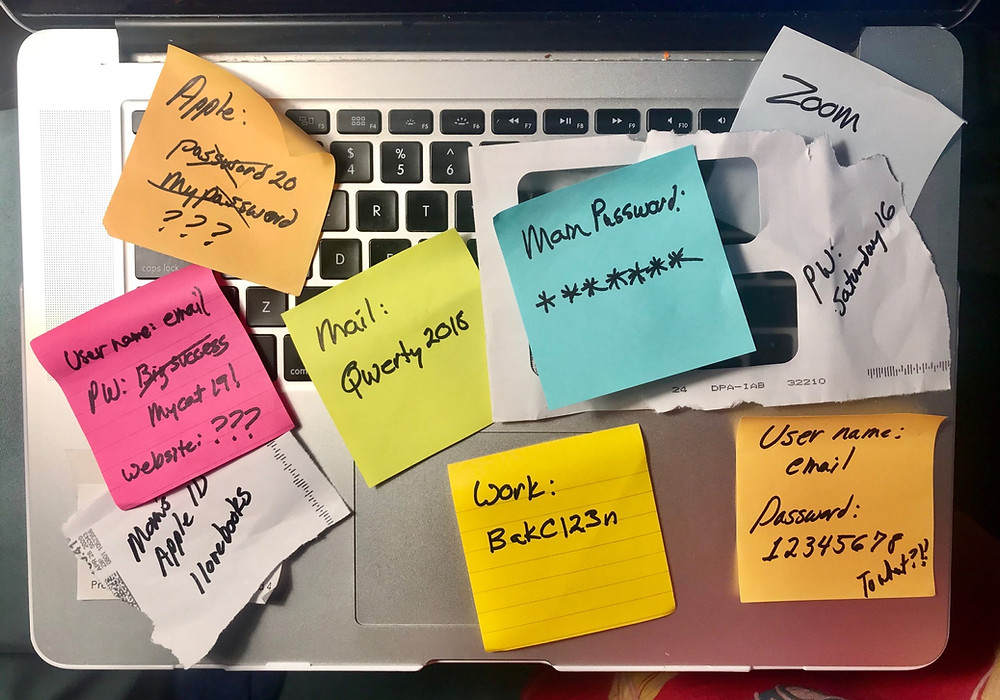 Apple:
password 20
Mypassword
???
Zoom
PW:
Saturday 16
Main Password:
*******
24 DPA-IAB 32210
User name: email
PW: Bigsuccess
Mycat 19!
website: ???
Mail:
Qwerty 2018
Mom's
Apple ID
Ilovebooks
Work:
BakC123n
User name:
email
Password:
12345678
To what?!!
F3
F4
F5
F6
F8
F9
F10
$
4
%
5
^
6
R
T
caps lock
D
Z
com